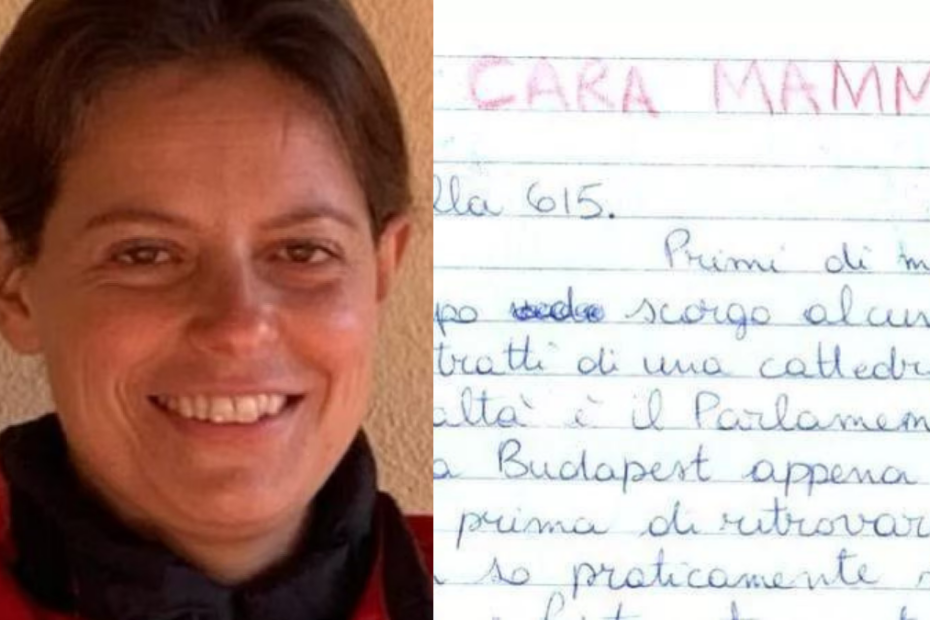 CARA MAMM
lla 615.
Primi di m
po scorgo alcun
tratti di una cattedr
altà è il Parlamen
a Budapest appena
prima di ritrovar
so praticamente